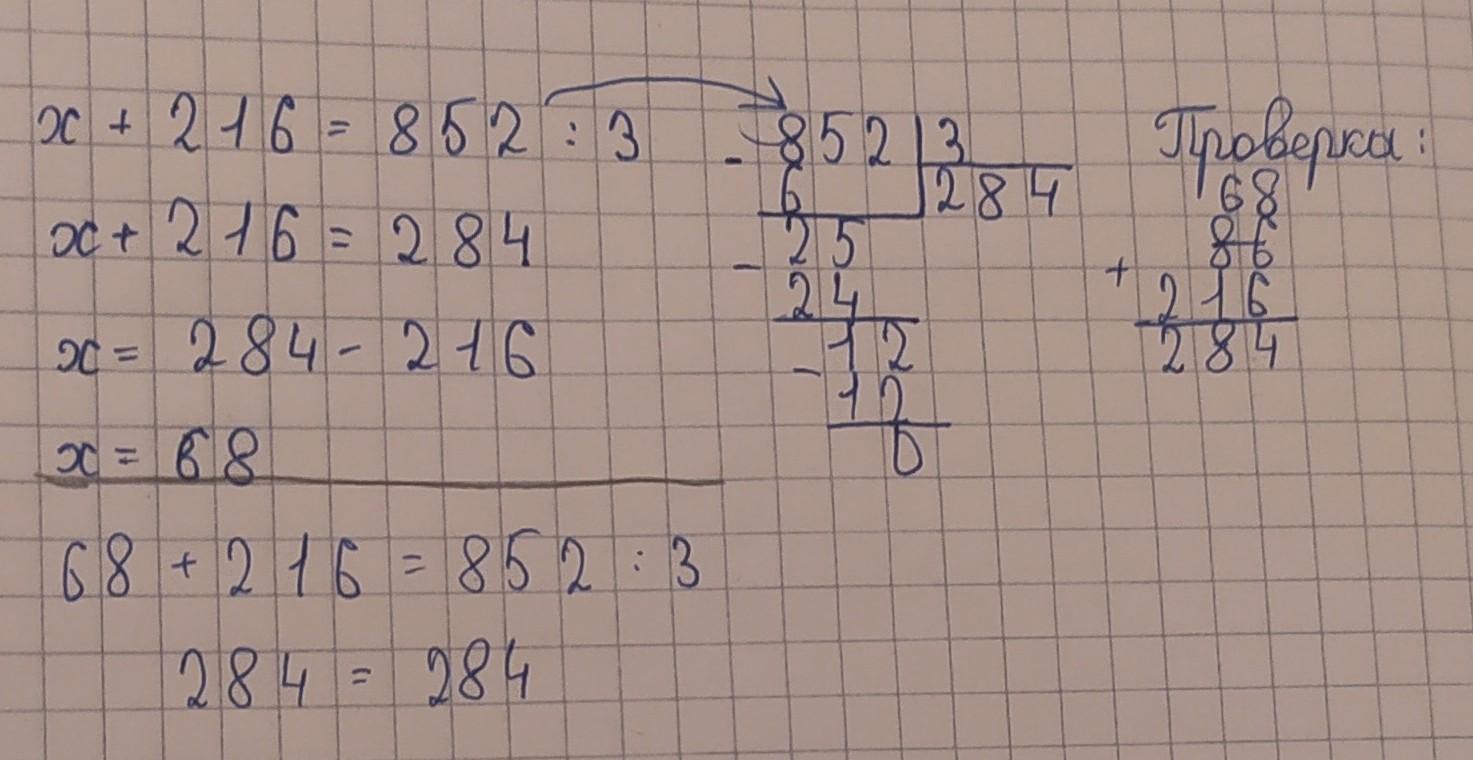 x + 216 = 852 : 3
x + 216 = 284
x = 284 - 216
x = 68
68 + 216 = 852 : 3
284 = 284
- 852 | 3
6 | 284
- 25
24
- 12
12
0
Проверка:
68
86
+ 216
284